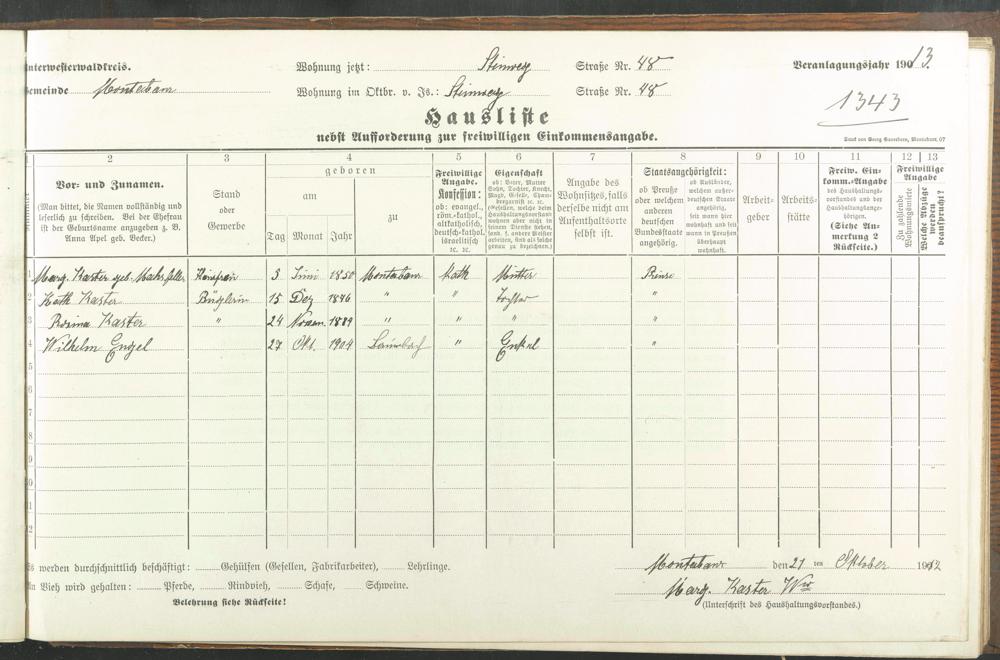 Unterwesterwaldkreis. Wohnung jetzt: Steinweg Straße Nr. 48 Veranlagungsjahr 1913.
Gemeinde Montabaur Wohnung im Oktbr. v. Js.: Steinweg Straße Nr. 48
1343
Hausliste
nebst Aufforderung zur freiwilligen Einkommensangabe.
Druck von Georg Sauerborn, Montabaur. 07
1 2 3 4 5 6 7 8 9 10 11 12 13
Vor- und Zunamen.
(Man bittet, die Namen vollständig und
leserlich zu schreiben. Bei der Ehefrau
ist der Geburtsname anzugeben z. B.
Anna Apel geb. Becker.)
Stand
oder
Gewerbe
geboren
am
zu
Tag Monat Jahr
Freiwillige
Angabe.
Konfession:
ob: evangel.,
röm.-kathol.,
altkatholisch,
deutsch-kathol.,
israelitisch
ꝛc. ꝛc.
Eigenschaft
ob: Vater, Mutter
Sohn, Tochter, Knecht,
Magd, Geselle, Cham-
bregarnist ꝛc. ꝛc.
(Gesellen, welche beim
Haushaltungsvorstand
wohnen aber nicht in
seinem Dienste stehen,
bzw. f. andere Meister
arbeiten, sind als solche
genau zu bezeichnen.)
Angabe des
Wohnsitzes, falls
derselbe nicht am
Aufenthaltsorte
selbst ist.
Staatsangehörigkeit:
ob Preuße
oder welchem
anderen
deutschen
Bundesstaate
angehörig.
ob Ausländer,
welchem außer-
deutschen Staate
angehörig,
seit wann hier
wohnhaft u. seit
wann in Preußen
überhaupt
wohnhaft.
Arbeit-
geber
Arbeits-
stätte
Freiw. Ein-
komm.-Angabe
des Haushaltungs-
vorstandes und der
Haushaltungsange-
hörigen.
(Siehe An-
merkung 2
Rückseite.)
Freiwillige
Angabe
Zu zahlende
Wohnungsmiete
Welche Abzüge
werden
beansprucht?
1 Marg. Kaster geb. Hausfrau 3 Juni 1850 Montabaur Kath Mutter Preuse
2 Kath Kaster Büglerin 15 Dez 1876 " " Tochter "
3 Rosina Kaster " 24 Novem. 1889 " " " "
4 Wilhelm Engel 27 Okt. 1904 " Enkel "
5
6
7
8
9
0
1
2
Es werden durchschnittlich beschäftigt: Gehülfen (Gesellen, Fabrikarbeiter), Lehrlinge.
An Vieh wird gehalten: Pferde, Rindvieh, Schafe, Schweine.
Belehrung siehe Rückseite!
Montabaur den 21 ten Oktober 1912
Marg. Kaster Ww
(Unterschrift des Haushaltungsvorstandes.)